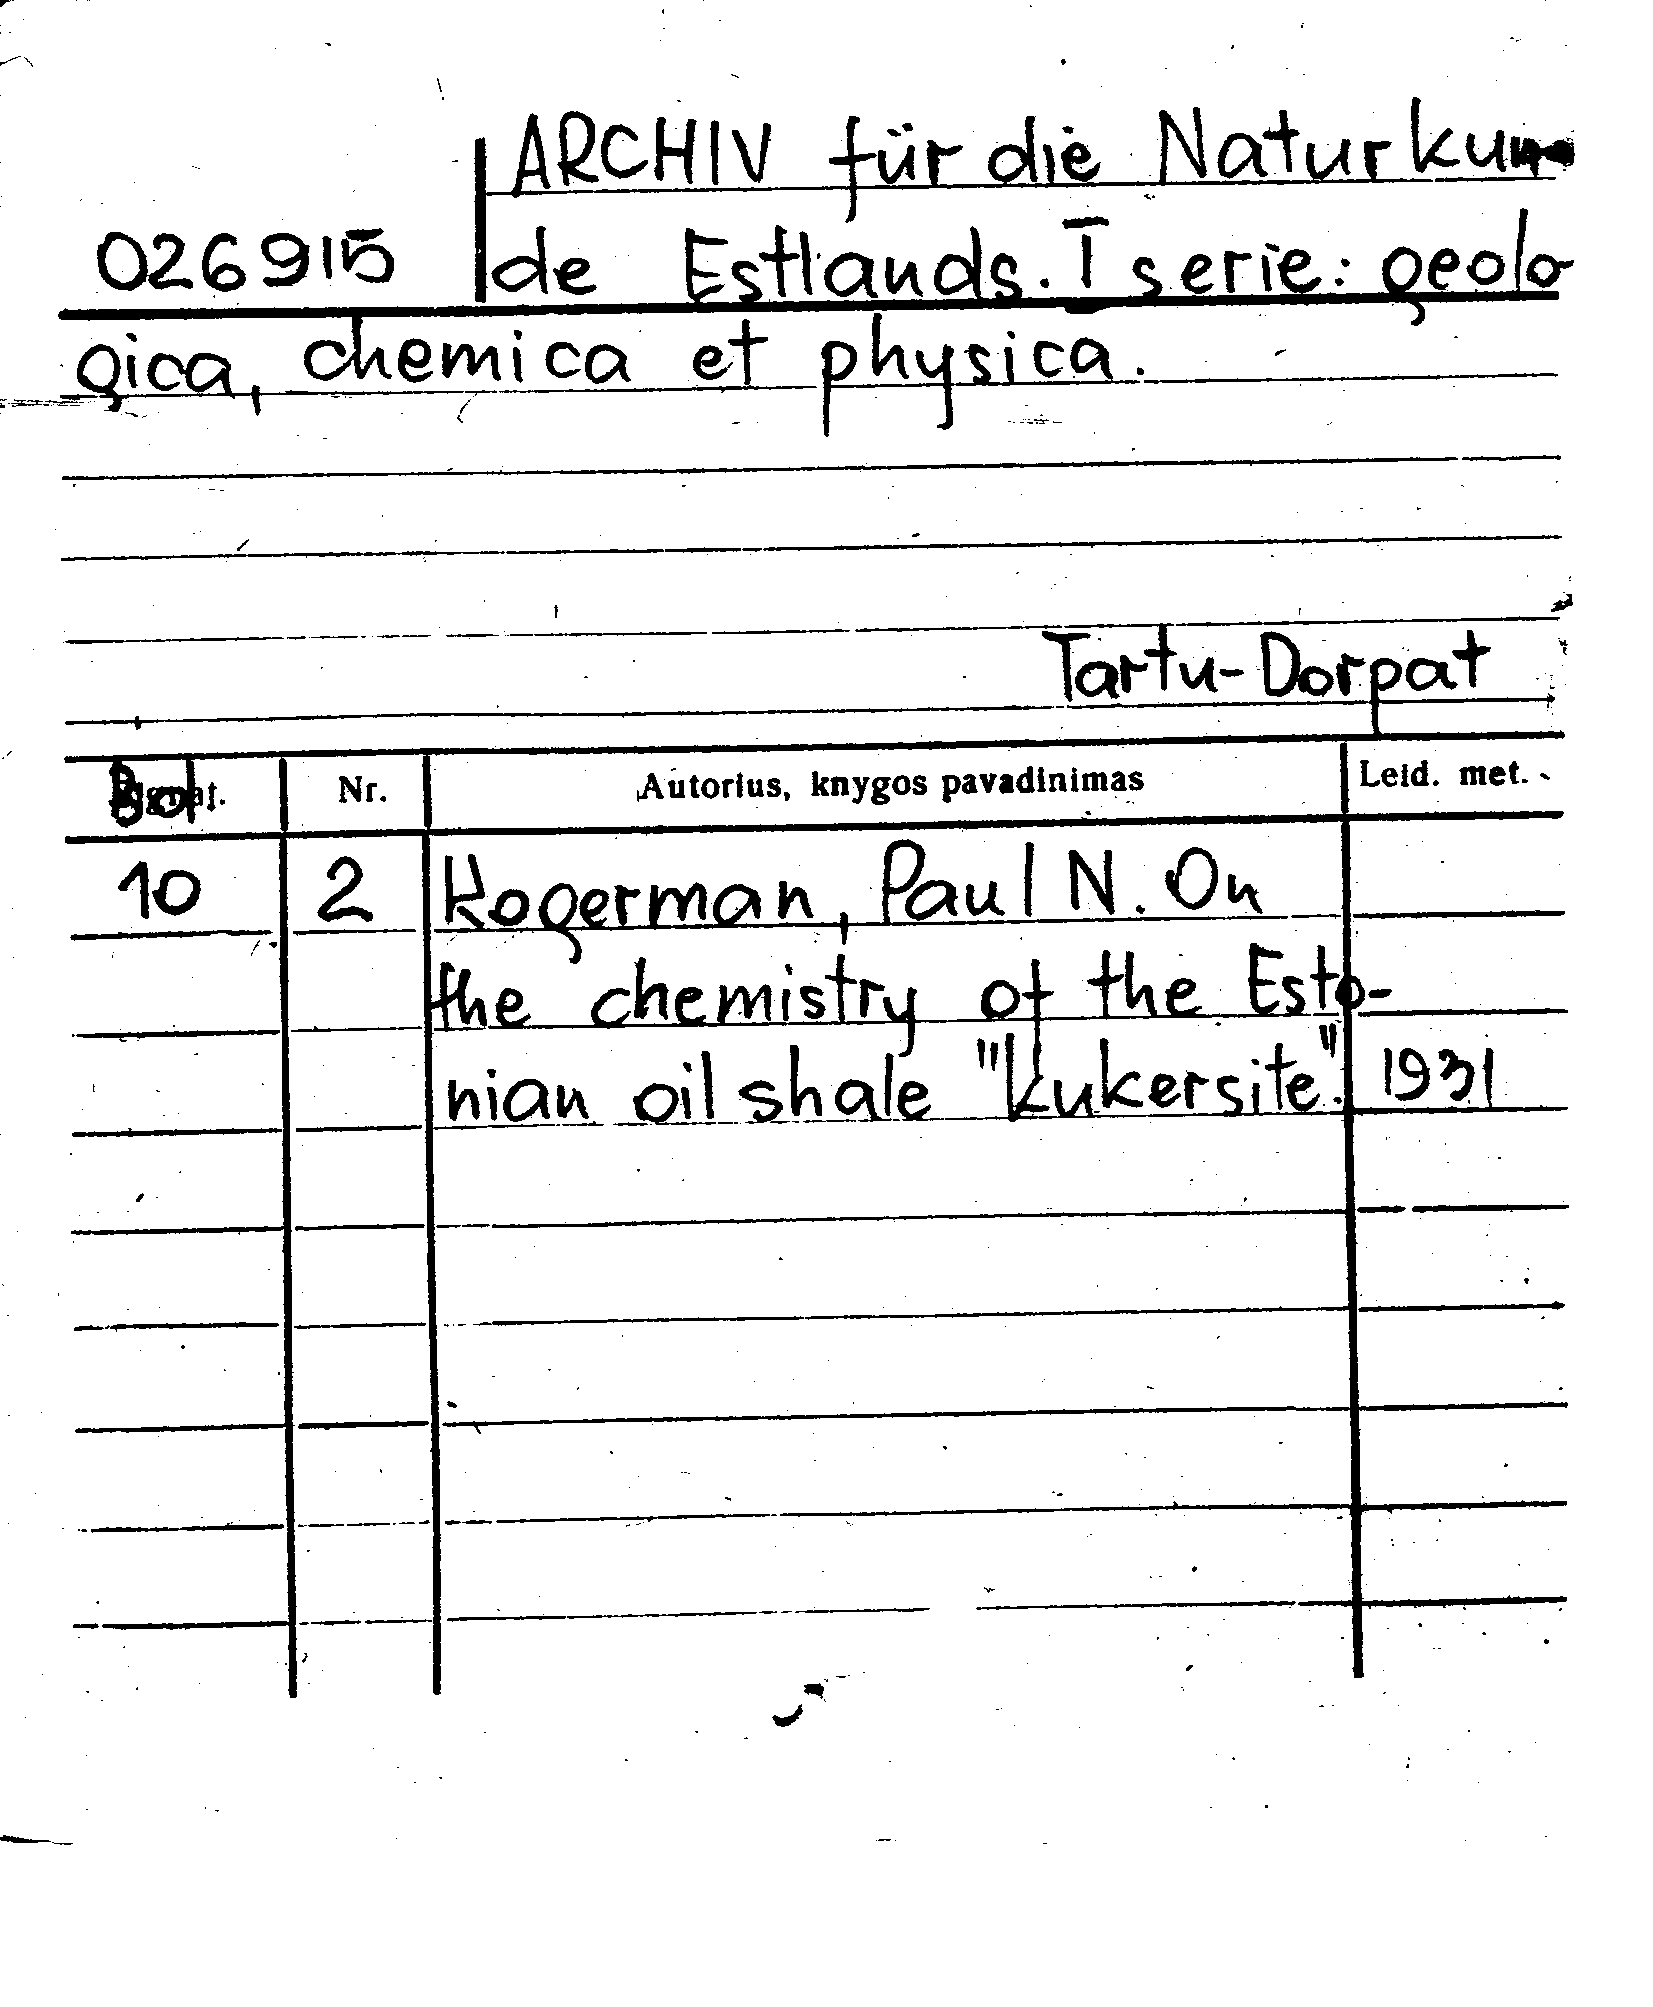 ARCHIV für die Naturkun-
026915 de Estlands. I serie: geolo-
gica, chemica et physica.
Tartu-Dorpat
Bd. Nr. Autorius, knygos pavadinimas Leid. met.
10 2 Kogerman, Paul N. On
the chemistry of the Esto-
nian oil shale "Kukersite". 1931